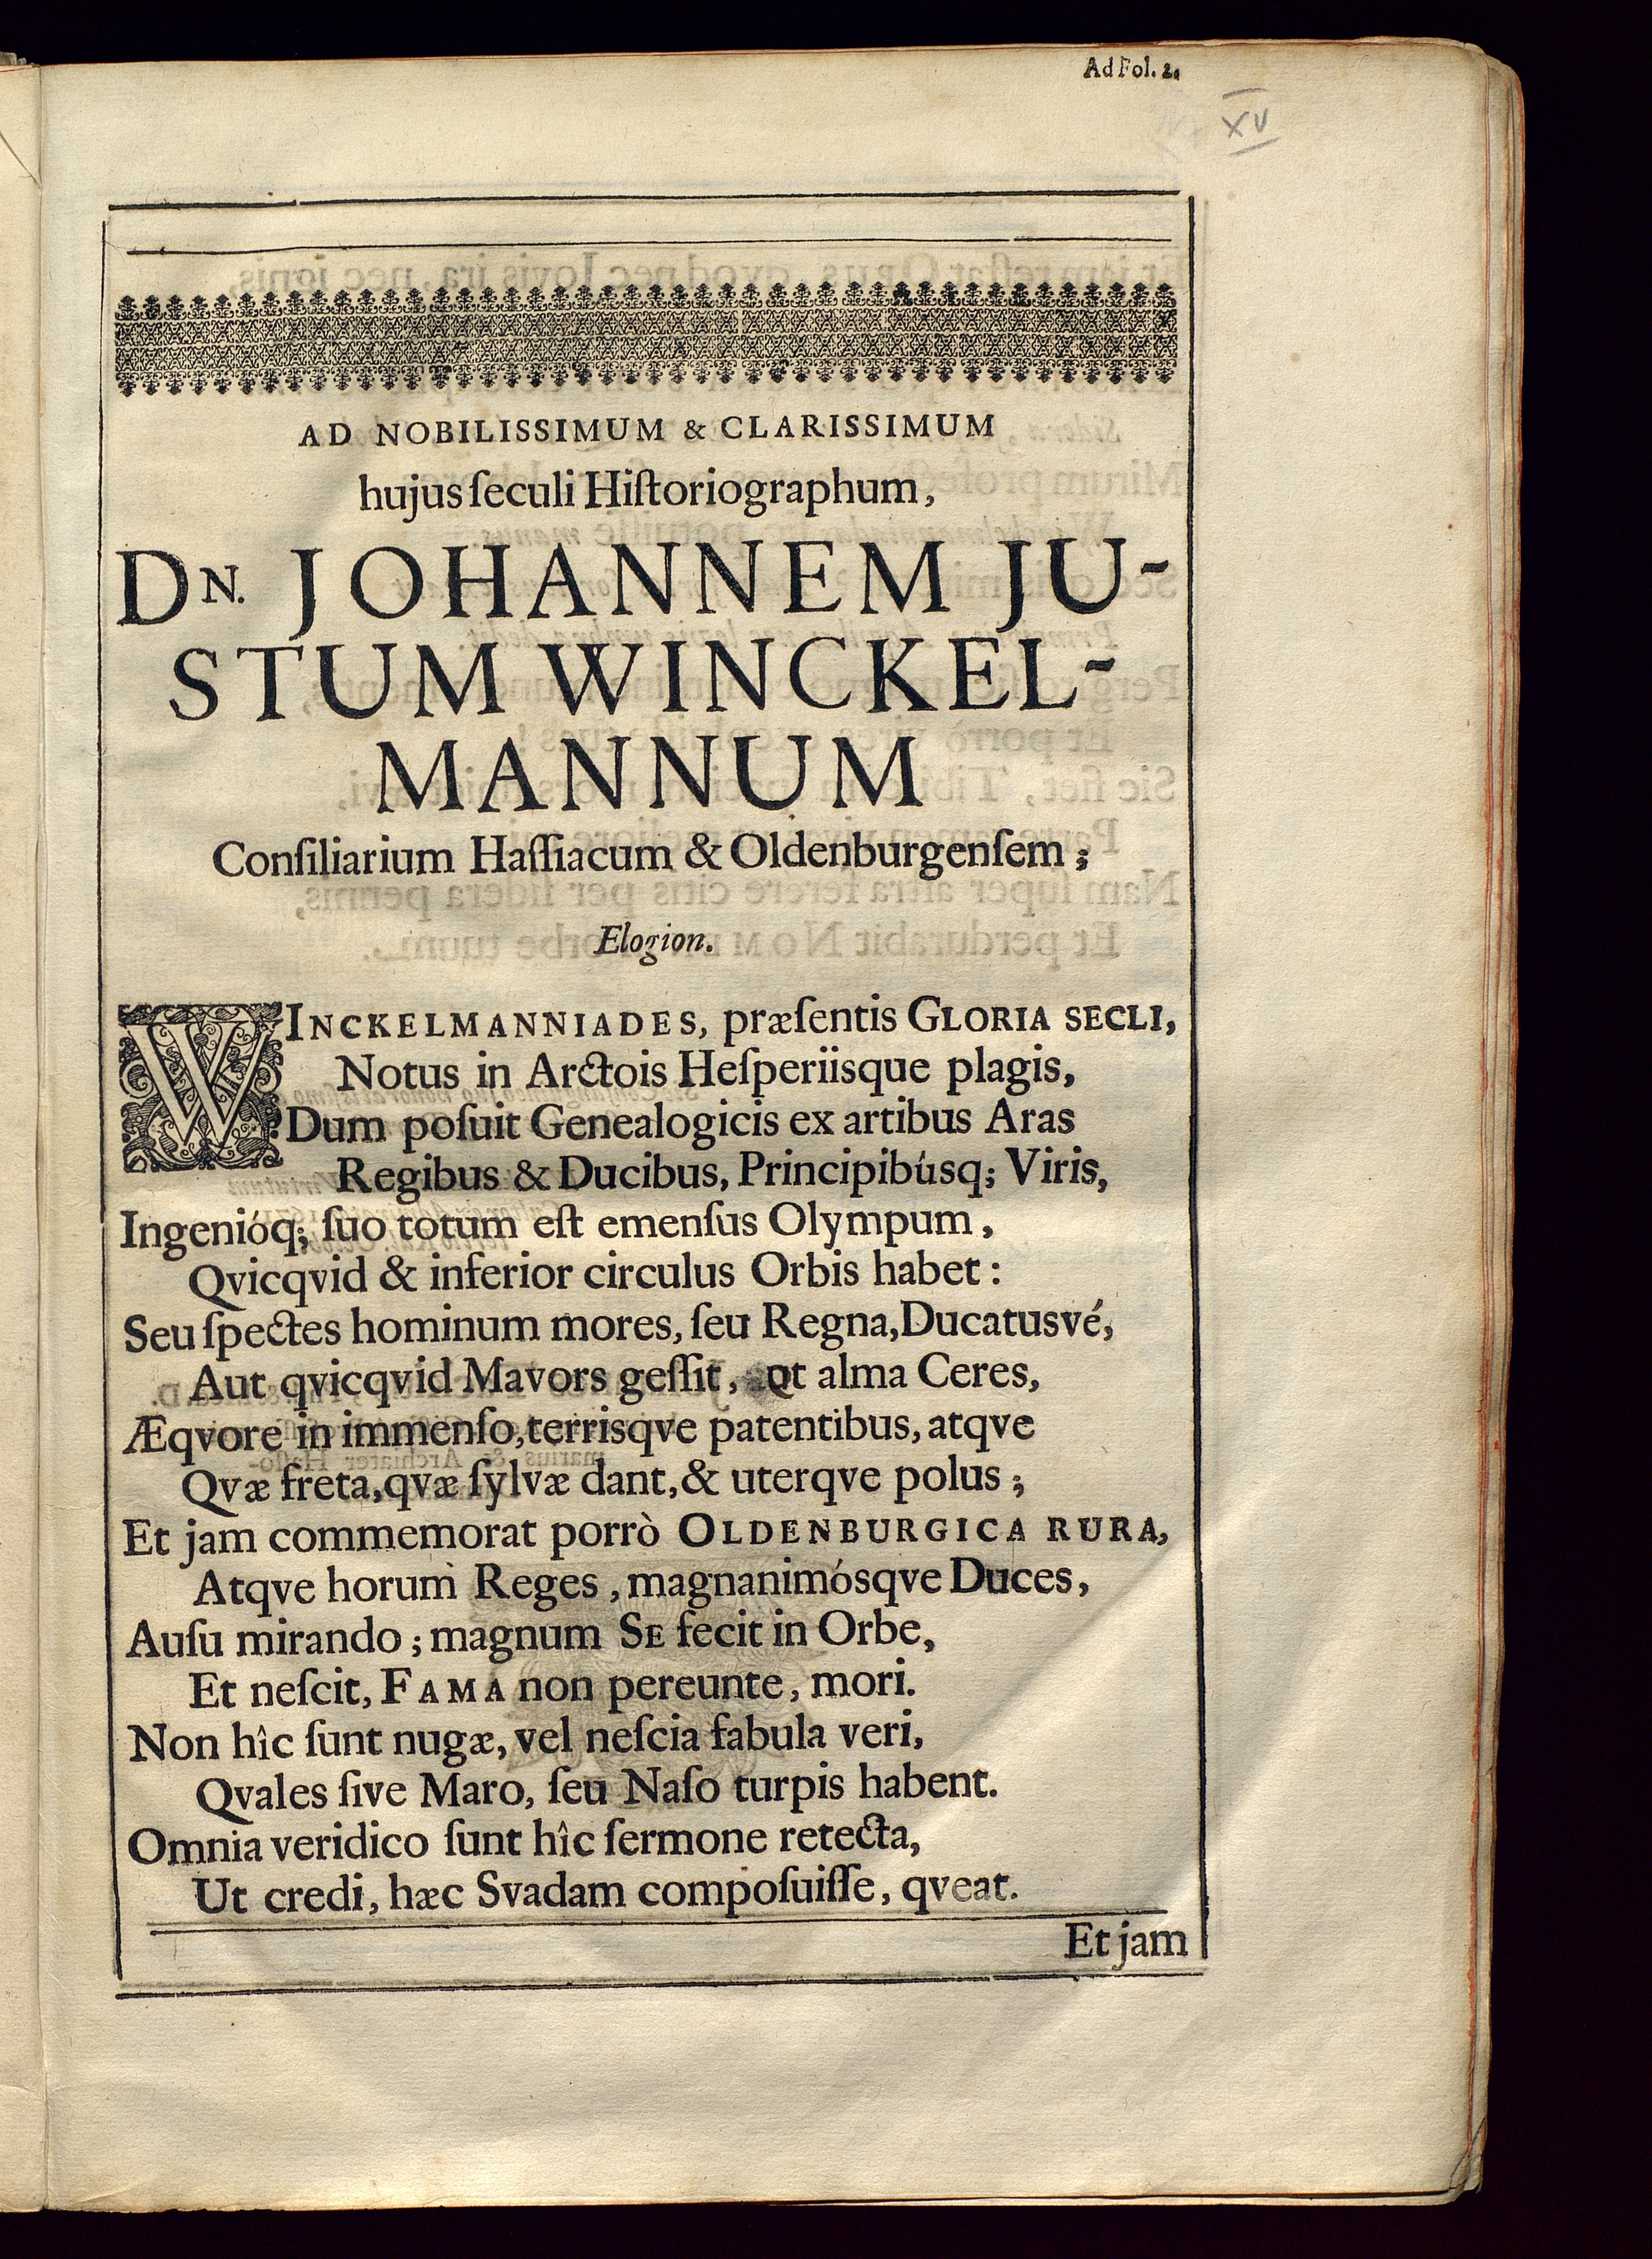 Ad Fol. 2.
XV
AD NOBILISSIMUM & CLARISSIMUM
hujus ſeculi Hiſtoriographum,
DN. JOHANNEM JU-
STUM WINCKEL-
MANNUM
Conſiliarium Haſſiacum & Oldenburgenſem;
Elogion.
WINCKELMANNIADES, præſentis GLORIA SECLI,
Notus in Arctois Heſperiisque plagis,
Dum poſuit Genealogicis ex artibus Aras
Regibus & Ducibus, Principibúsq; Viris,
Ingenióq; ſuo totum eſt emenſus Olympum,
Qvicqvid & inferior circulus Orbis habet:
Seu ſpectes hominum mores, ſeu Regna, Ducatusvé,
Aut qvicqvid Mavors geſſit, ut alma Ceres,
Æqvore in immenſo, terrisqve patentibus, atqve
Qvæ freta, qvæ ſylvæ dant, & uterqve polus;
Et jam commemorat porrò OLDENBURGICA RURA,
Atqve horum Reges, magnanimósqve Duces,
Auſu mirando; magnum SE fecit in Orbe,
Et neſcit, FAMA non pereunte, mori.
Non hîc ſunt nugæ, vel neſcia fabula veri,
Qvales ſive Maro, ſeu Naſo turpis habent.
Omnia veridico ſunt hîc ſermone retecta,
Ut credi, hæc Svadam compoſuiſſe, qveat.
Et jam